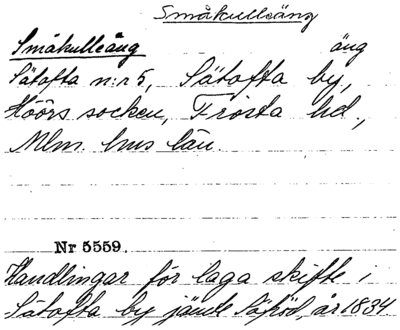 Småkulleäng
Småkulleäng äng
Sätofta n:r 5, Sätofta by,
Höörs socken, Frosta hd.,
Mlm. hus län.
Nr 5559.
Handlingar för laga skifte i
Sätofta by jämte år 1834